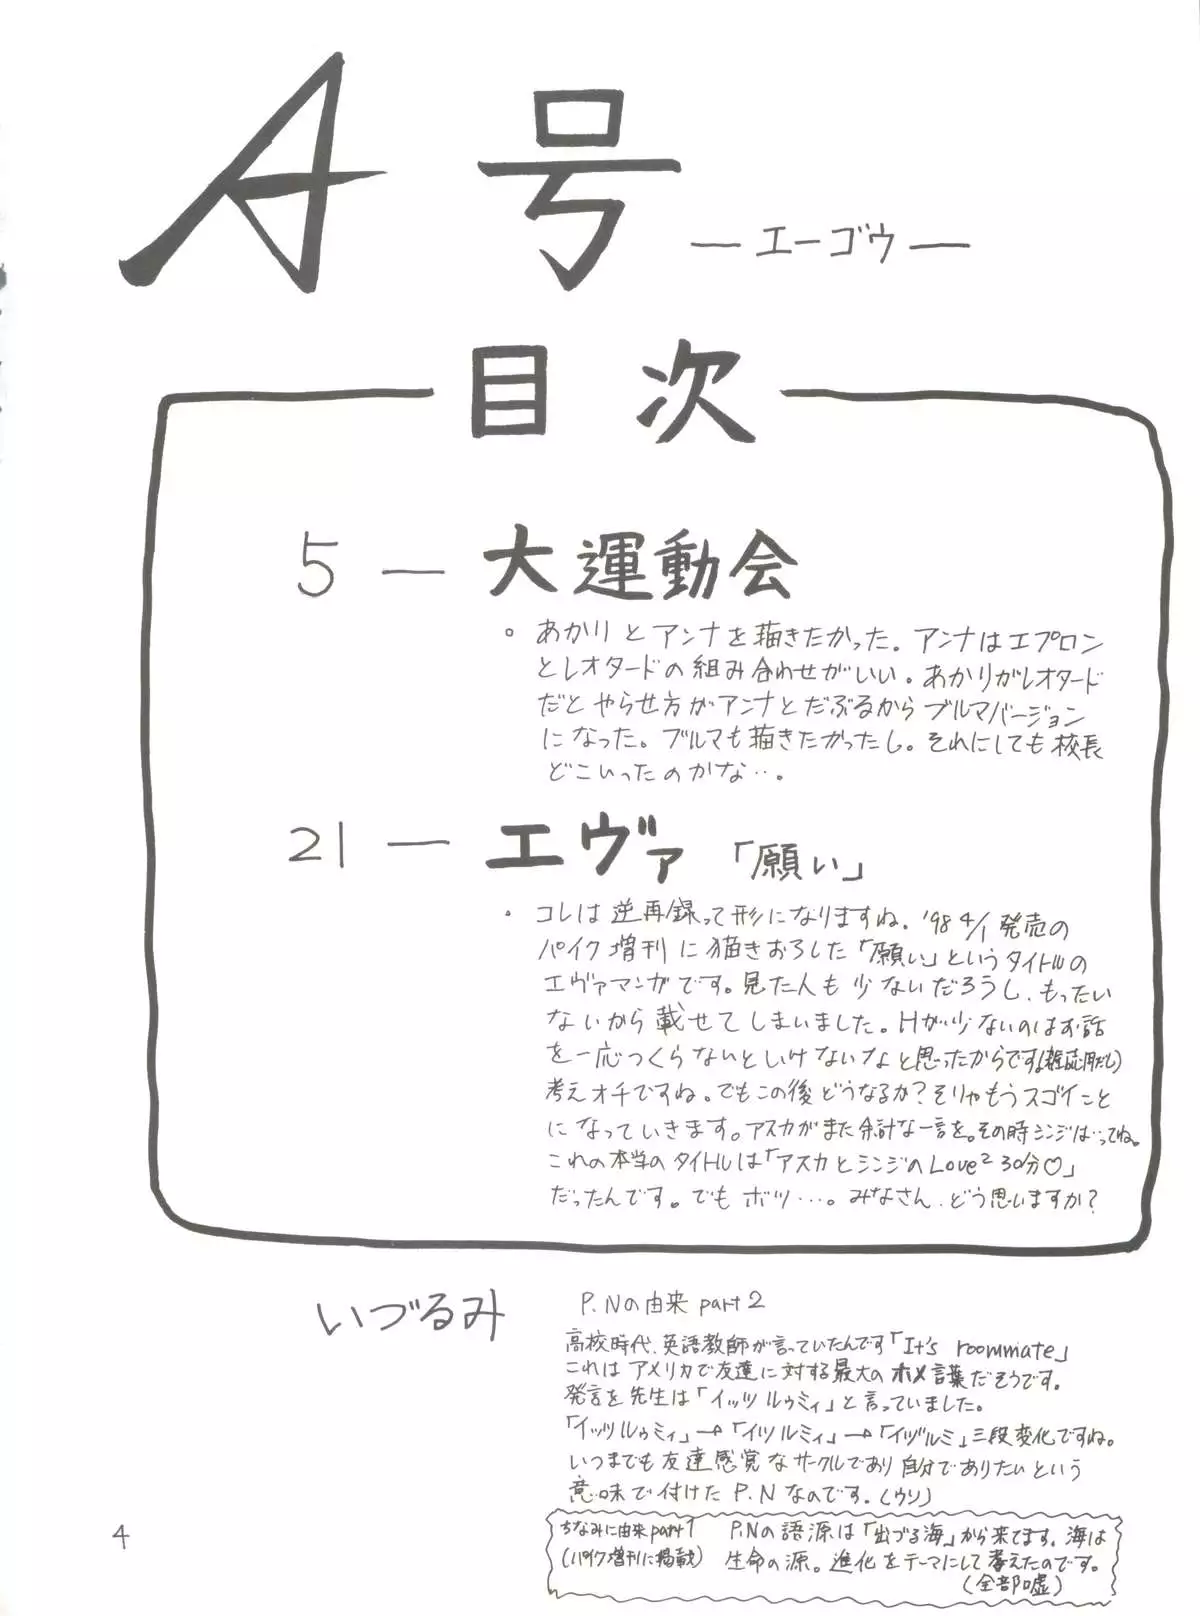 A号
―エーゴウ―
目次
5 ― 大運動会
。あかりとアンナを描きたかった。アンナはエプロン
とレオタードの組み合わせがいい。あかりがレオタード
だとやらせ方がアンナとだぶるからブルマバージョン
になった。ブルマも描きたかったし。それにしても校長
どこいったのかな…。
21 ― エヴァ「願い」
・コレは逆再録って形になりますね。'98 4/1発売の
パイク増刊に描きおろした「願い」というタイトルの
エヴァマンガです。見た人も少ないだろうし、もったい
ないから載せてしまいました。Hが少ないのはお話
を一応つくらないといけないなと思ったからです。
考えオチですね。でもこの後どうなるか？そりゃもうスゴイこと
になっていきます。アスカがまた余計な一言を。その時シンジは…ってね。
これの本当のタイトルは「アスカとシンジのLove² 30分♡」
だったんです。でもボツ…。みなさん、どう思いますか？
いづるみ
P.Nの由来 part2
高校時代、英語教師が言っていたんです「It's roommate」
これはアメリカで友達に対する最大のホメ言葉だそうです。
発言を先生は「イッツ ルゥミィ」と言っていました。
「イッツルゥミィ」→「イツルミィ」→「イヅルミ」三段変化ですね。
いつまでも友達感覚なサークルであり自分でありたいという
意味で付けたP.Nなのです。(ウソ)
ちなみに由来part1
(パイク増刊に掲載)
P.Nの語源は「出づる海」から来てます。海は
生命の源。進化をテーマにして考えたのです。
(全部嘘)
4